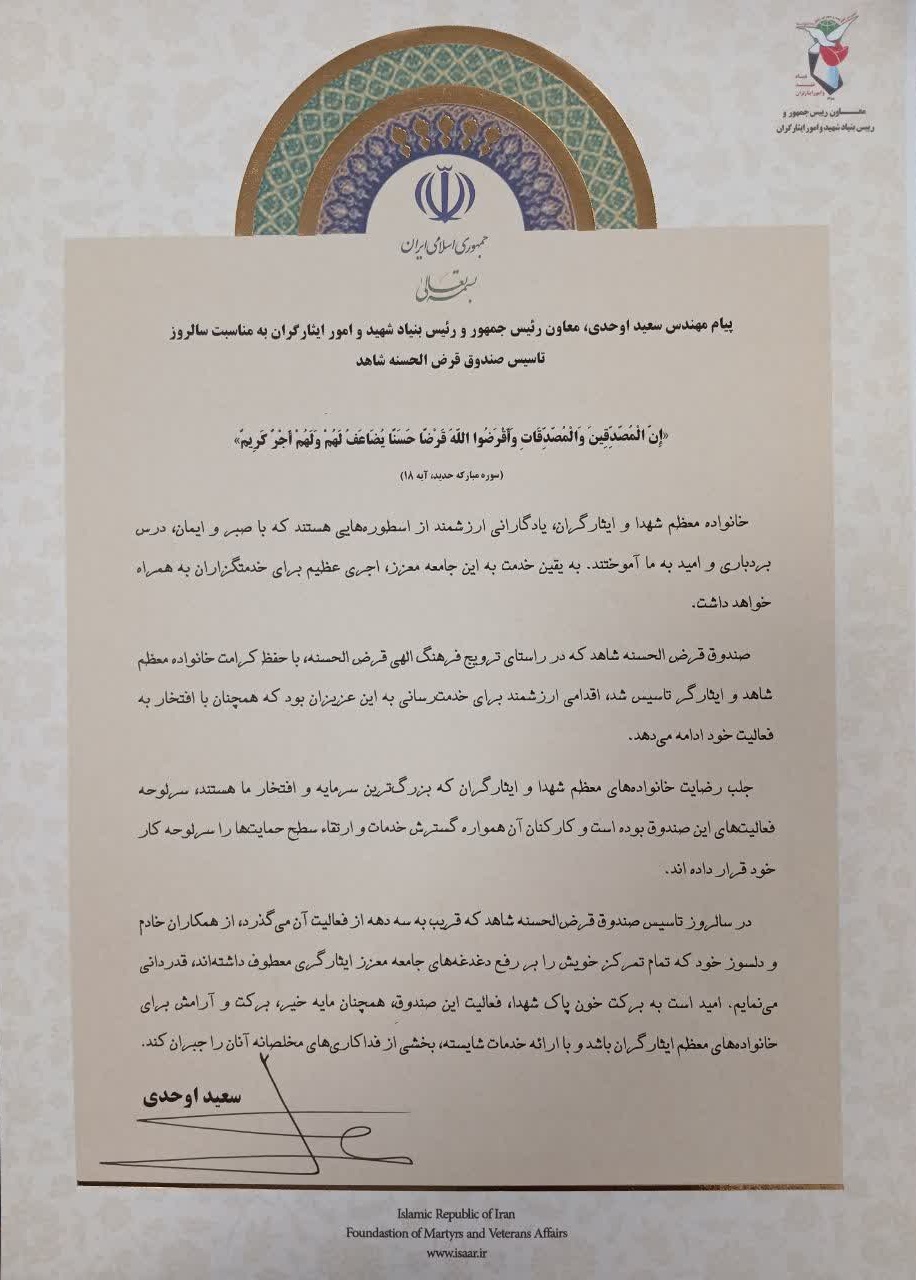 معاون رییس جمهور و
رییس بنیاد شهید و امور ایثارگران
جمهوری اسلامی ایران
بسمه تعالی
پیام مهندس سعید اوحدی، معاون رئیس جمهور و رئیس بنیاد شهید و امور ایثارگران به مناسبت سالروز
تاسیس صندوق قرض الحسنه شاهد
«إِنَّ الْمُصَّدِّقِینَ وَالْمُصَّدِّقَاتِ وَأَقْرَضُوا اللَّهَ قَرْضًا حَسَنًا یُضَاعَفُ لَهُمْ وَلَهُمْ أَجْرٌ کَرِیمٌ»
(سوره مبارکه حدید، آیه ۱۸)
خانواده معظم شهدا و ایثارگران، یادگارانی ارزشمند از اسطوره‌هایی هستند که با صبر و ایمان، درس
بردباری و امید به ما آموختند. به یقین خدمت به این جامعه معزز، اجری عظیم برای خدمتگزاران به همراه
خواهد داشت.
صندوق قرض الحسنه شاهد که در راستای ترویج فرهنگ الهی قرض الحسنه، با حفظ کرامت خانواده معظم
شاهد و ایثارگر تاسیس شد، اقدامی ارزشمند برای خدمت‌رسانی به این عزیزان بود که همچنان با افتخار به
فعالیت خود ادامه می‌دهد.
جلب رضایت خانواده‌های معظم شهدا و ایثارگران که بزرگ‌ترین سرمایه و افتخار ما هستند، سرلوحه
فعالیت‌های این صندوق بوده است و کارکنان آن همواره گسترش خدمات و ارتقاء سطح حمایت‌ها را سرلوحه کار
خود قرار داده اند.
در سالروز تاسیس صندوق قرض‌الحسنه شاهد که قریب به سه دهه از فعالیت آن می‌گذرد، از همکاران خادم
و دلسوز خود که تمام تمرکز خویش را بر رفع دغدغه‌های جامعه معزز ایثارگری معطوف داشته‌اند، قدردانی
می‌نمایم. امید است به برکت خون پاک شهدا، فعالیت این صندوق، همچنان مایه خیر، برکت و آرامش برای
خانواده‌های معظم ایثارگران باشد و با ارائه خدمات شایسته، بخشی از فداکاری‌های مخلصانه آنان را جبران کند.
سعید اوحدی
Islamic Republic of Iran
Foundastion of Martyrs and Veterans Affairs
www.isaar.ir